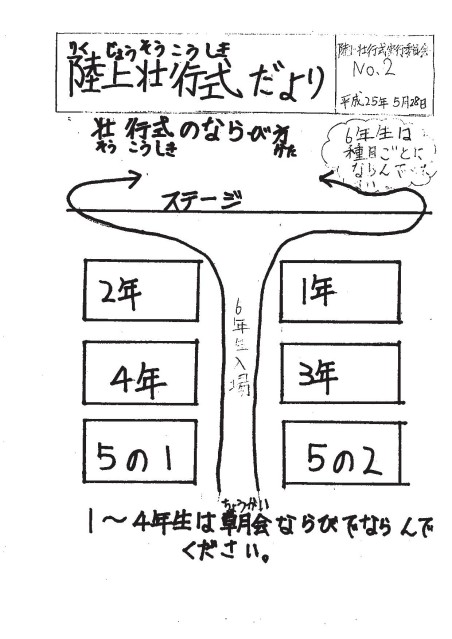 りくじょうそうこうしき
陸上壮行式だより
陸上壮行式実行委員会
No.2
平成25年5月28日
壮行式のならび方
そうこうしき がた
6年生は
種目ごとに
ならんで
ステージ
2年
1年
6年生入場
4年
3年
5の1
5の2
ちょうかい
1～4年生は朝会ならびでならんで
ください。